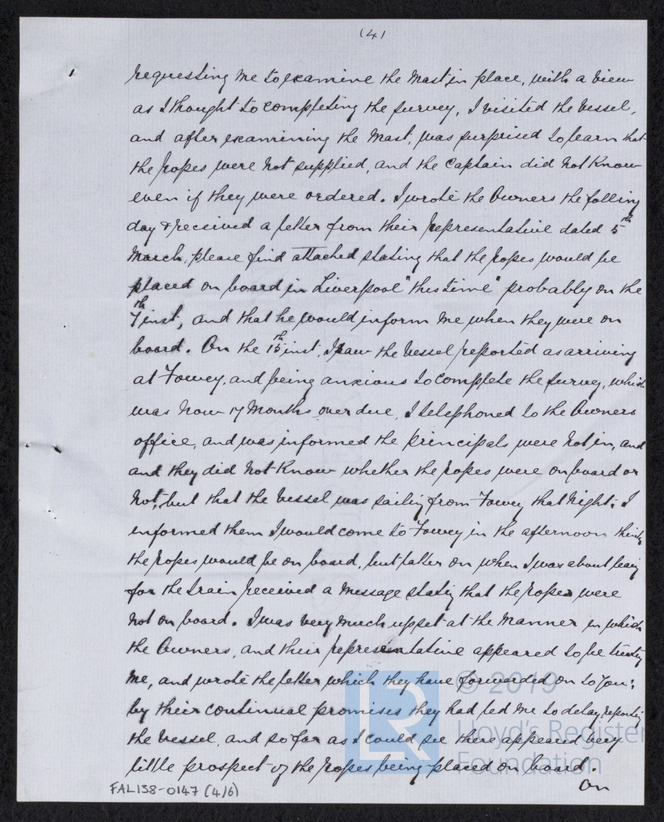 (4)
requesting me to examine the Mast in place, with a view
as I thought to completing the survey, I visited the Vessel,
and after examining the Mast, was surprised to learn that
the ropes were not supplied, and the Captain did not know
even if they were ordered. I wrote the Owners the folling
day & received a letter from their representative dated 5th
March, please find attached stating that the ropes would be
placed on board in Liverpool "this time" probably on the
7th inst, and that he would inform me when they were on
board. On the 15th inst, I saw the Vessel reported as arriving
at Fowey, and being anxious to complete the survey, which
was now 17 Months over due, I telephoned to the Owners
office, and was informed the principals were not in, and
and they did not know whether the ropes were on board or
not, but that the Vessel was sailing from Fowey that night. I
informed them I would come to Fowey in the afternoon thinkg
the ropes would be on board, but later on when I was about leavg
for the train received a message statig that the ropes were
not on board. I was very much upset at the manner in which
the Owners, and their representative appeared to be treatg
me, and wrote the letter which they have forwarded on to you;
by their continual promises they had led me to delay reportg
the Vessel, and so far as I could see there appeared very
little prospect of the ropes being placed on board.
On
FAL138-0147 (4/6)
© 2019
Lloyd's Register
Foundation
LR